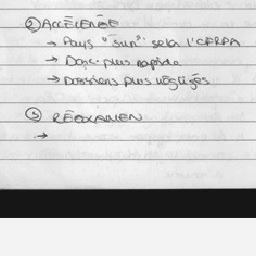 ② ACCÉLÉRÉE
→ Pays "sûr" selon l'OFPRA
→ Donc plus rapide
→ Dossiers plus négligés
③ RÉEXAMEN
→